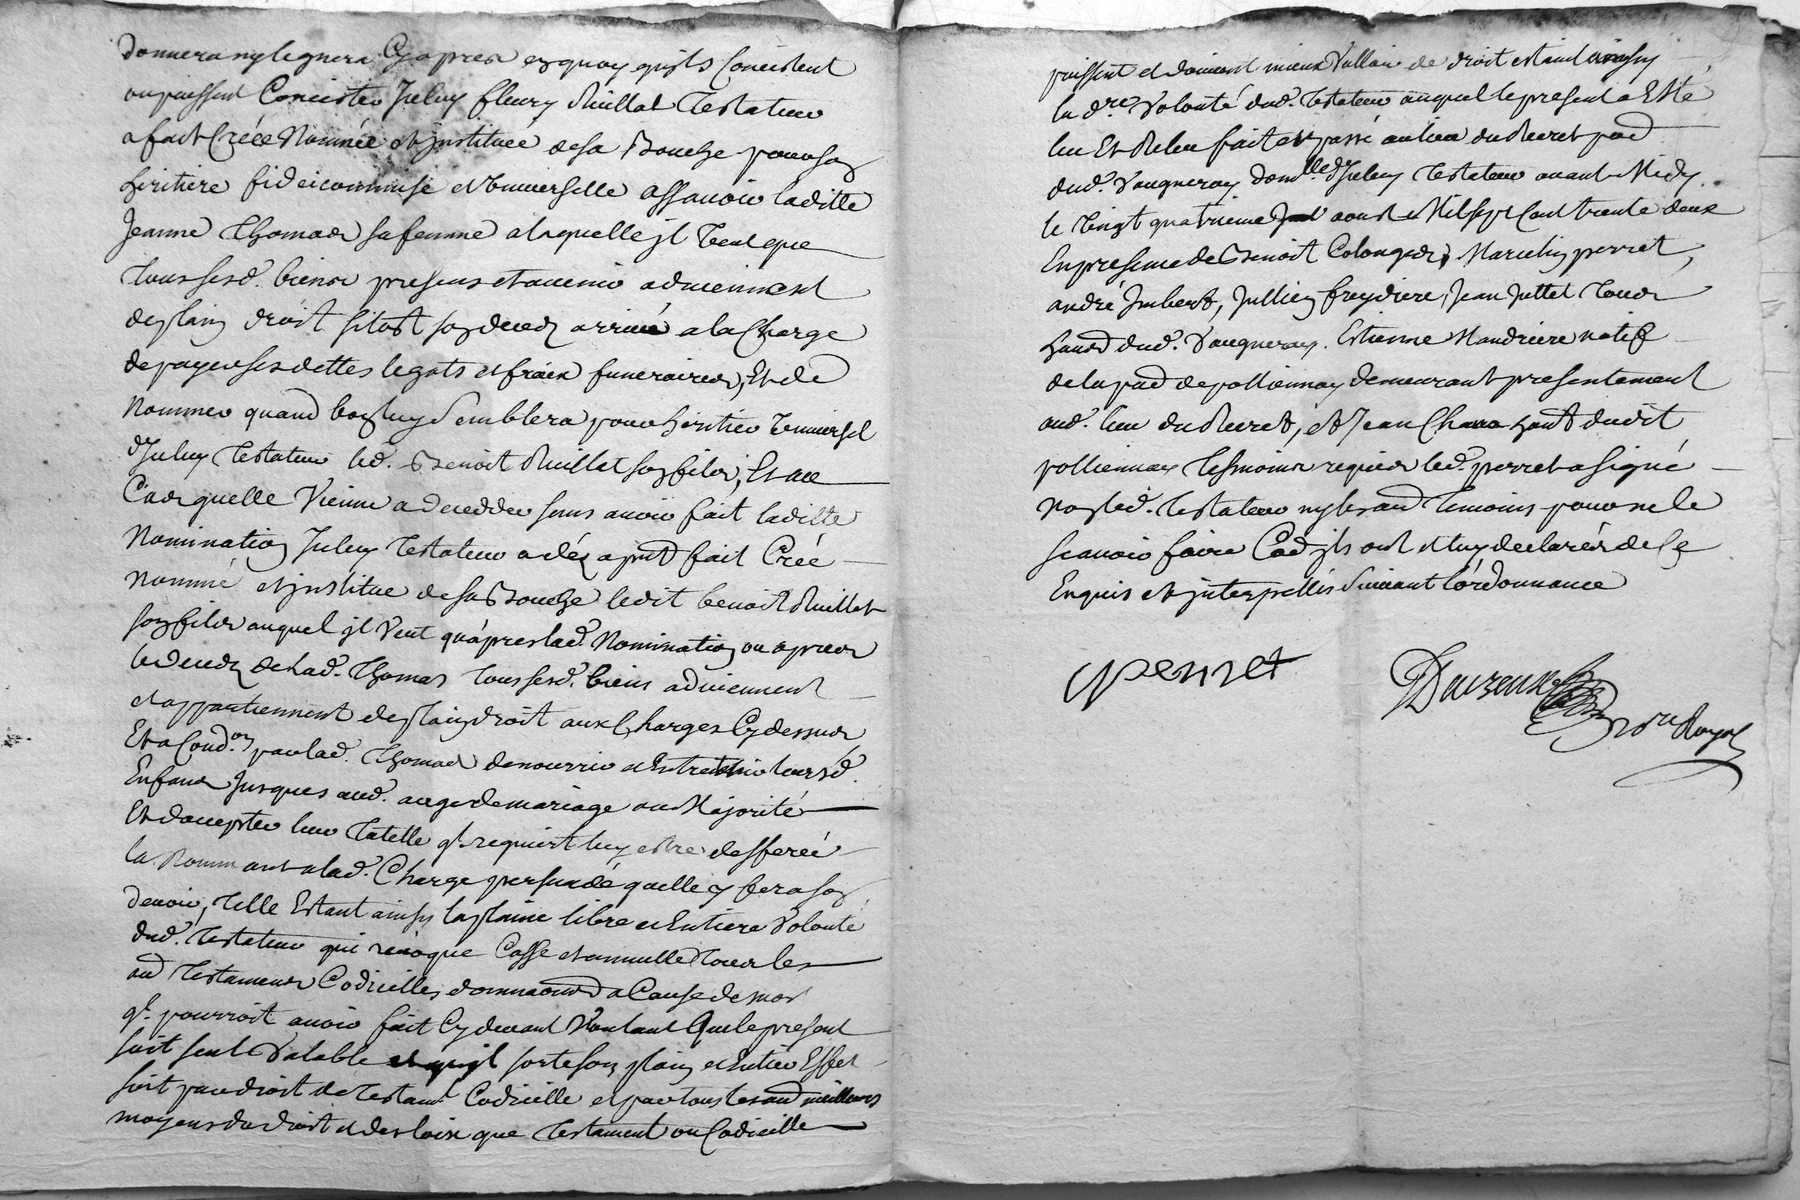 donnera ny legnera Cy apres en quoy quils Concistent
ou puissent Concister Iceluy fleury Ruillat Testateur
a fait Créée Nommée et jnstituée de sa Bouche pour son
heritiere fideicommise et Vniverselle assauoir laditte
Jeanne Thomas sa femme a laquelle jl Veut que
tous sesd. biens presens et auenir aduiennent
de plain droit sitost son deces arriué a la Charge
de payer ses dettes legats et fraix funeraires, Et de
Nommer quand bon luy Semblera pour heritier Vniversel
d'Iceluy Testateur led. Benoit Ruillat son fils, Et au
Cas quelle Vienne a deceder sans auoir fait laditte
Nomination Iceluy Testateur a dés a pnt fait Créé
nommé et jnstitue de sa Bouche ledit benoit Ruillat
son fils auquel jl Veut qu'apres lad. Nomination ou apres
le deces de lad. Thomas tous sesd. biens aduiennent
et appartiennent de plain droit aux Charges Cy dessus
Et a Cond.on par lad. Thomas de nourrir et Entretenir leursd.
Enfans Jusques aud. aage de mariage ou Majorité
Et d'accepter leur Tutelle ql. requiert luy estre defferée
la Nommant a lad. Charge persuadé quelle y fera son
deuoir, Telle Estant ainsy la plaine libre et Entiere Volonté
dud. Testateur qui reuoque Casse et annulle Tous les
aud Testamens Codicilles, donnaons a Cause de mort
ql. pourroit auoir fait Cy deuant Voulant Que le present
soit seul Valable et quil sorte son plain et Entier Effet
soit par droit de Testamt Codicille et par tous les aud meilleurs
moyens du droit et des loix que Testament ou Codicille
puissent et doiuent mieux Valloir de droit estant ainsy
la d.re Volonté dud. Testateur auquel le present a Esté
leu Et Releu fait et passé au lieu du Recret pad
dud. Vaugneray dom.lle d'Iceluy Testateur auant Midy
le Vingt quatrieme aoust Mil sept Cent trente deux
En presence de Benoit Colonges, Marcelin perret,
andré Jmbert, Jullien freydiere, Jean Juttet Tous
hants dud. Vaugneray. Estienne Mandriere natif
de la pad de pollionnay demeurant presentement
aud. lieu du Recret, et Jean Chana hant dudit
pollionnay Tesmoins requis led. perret a signé
non led. Testateur ny les aud Temoins pour ne le
scauoir faire Cad jls ont et luy declarés de Ce
Enquis et jnterpellés Suiuant l'ordonnance
perret
Royal